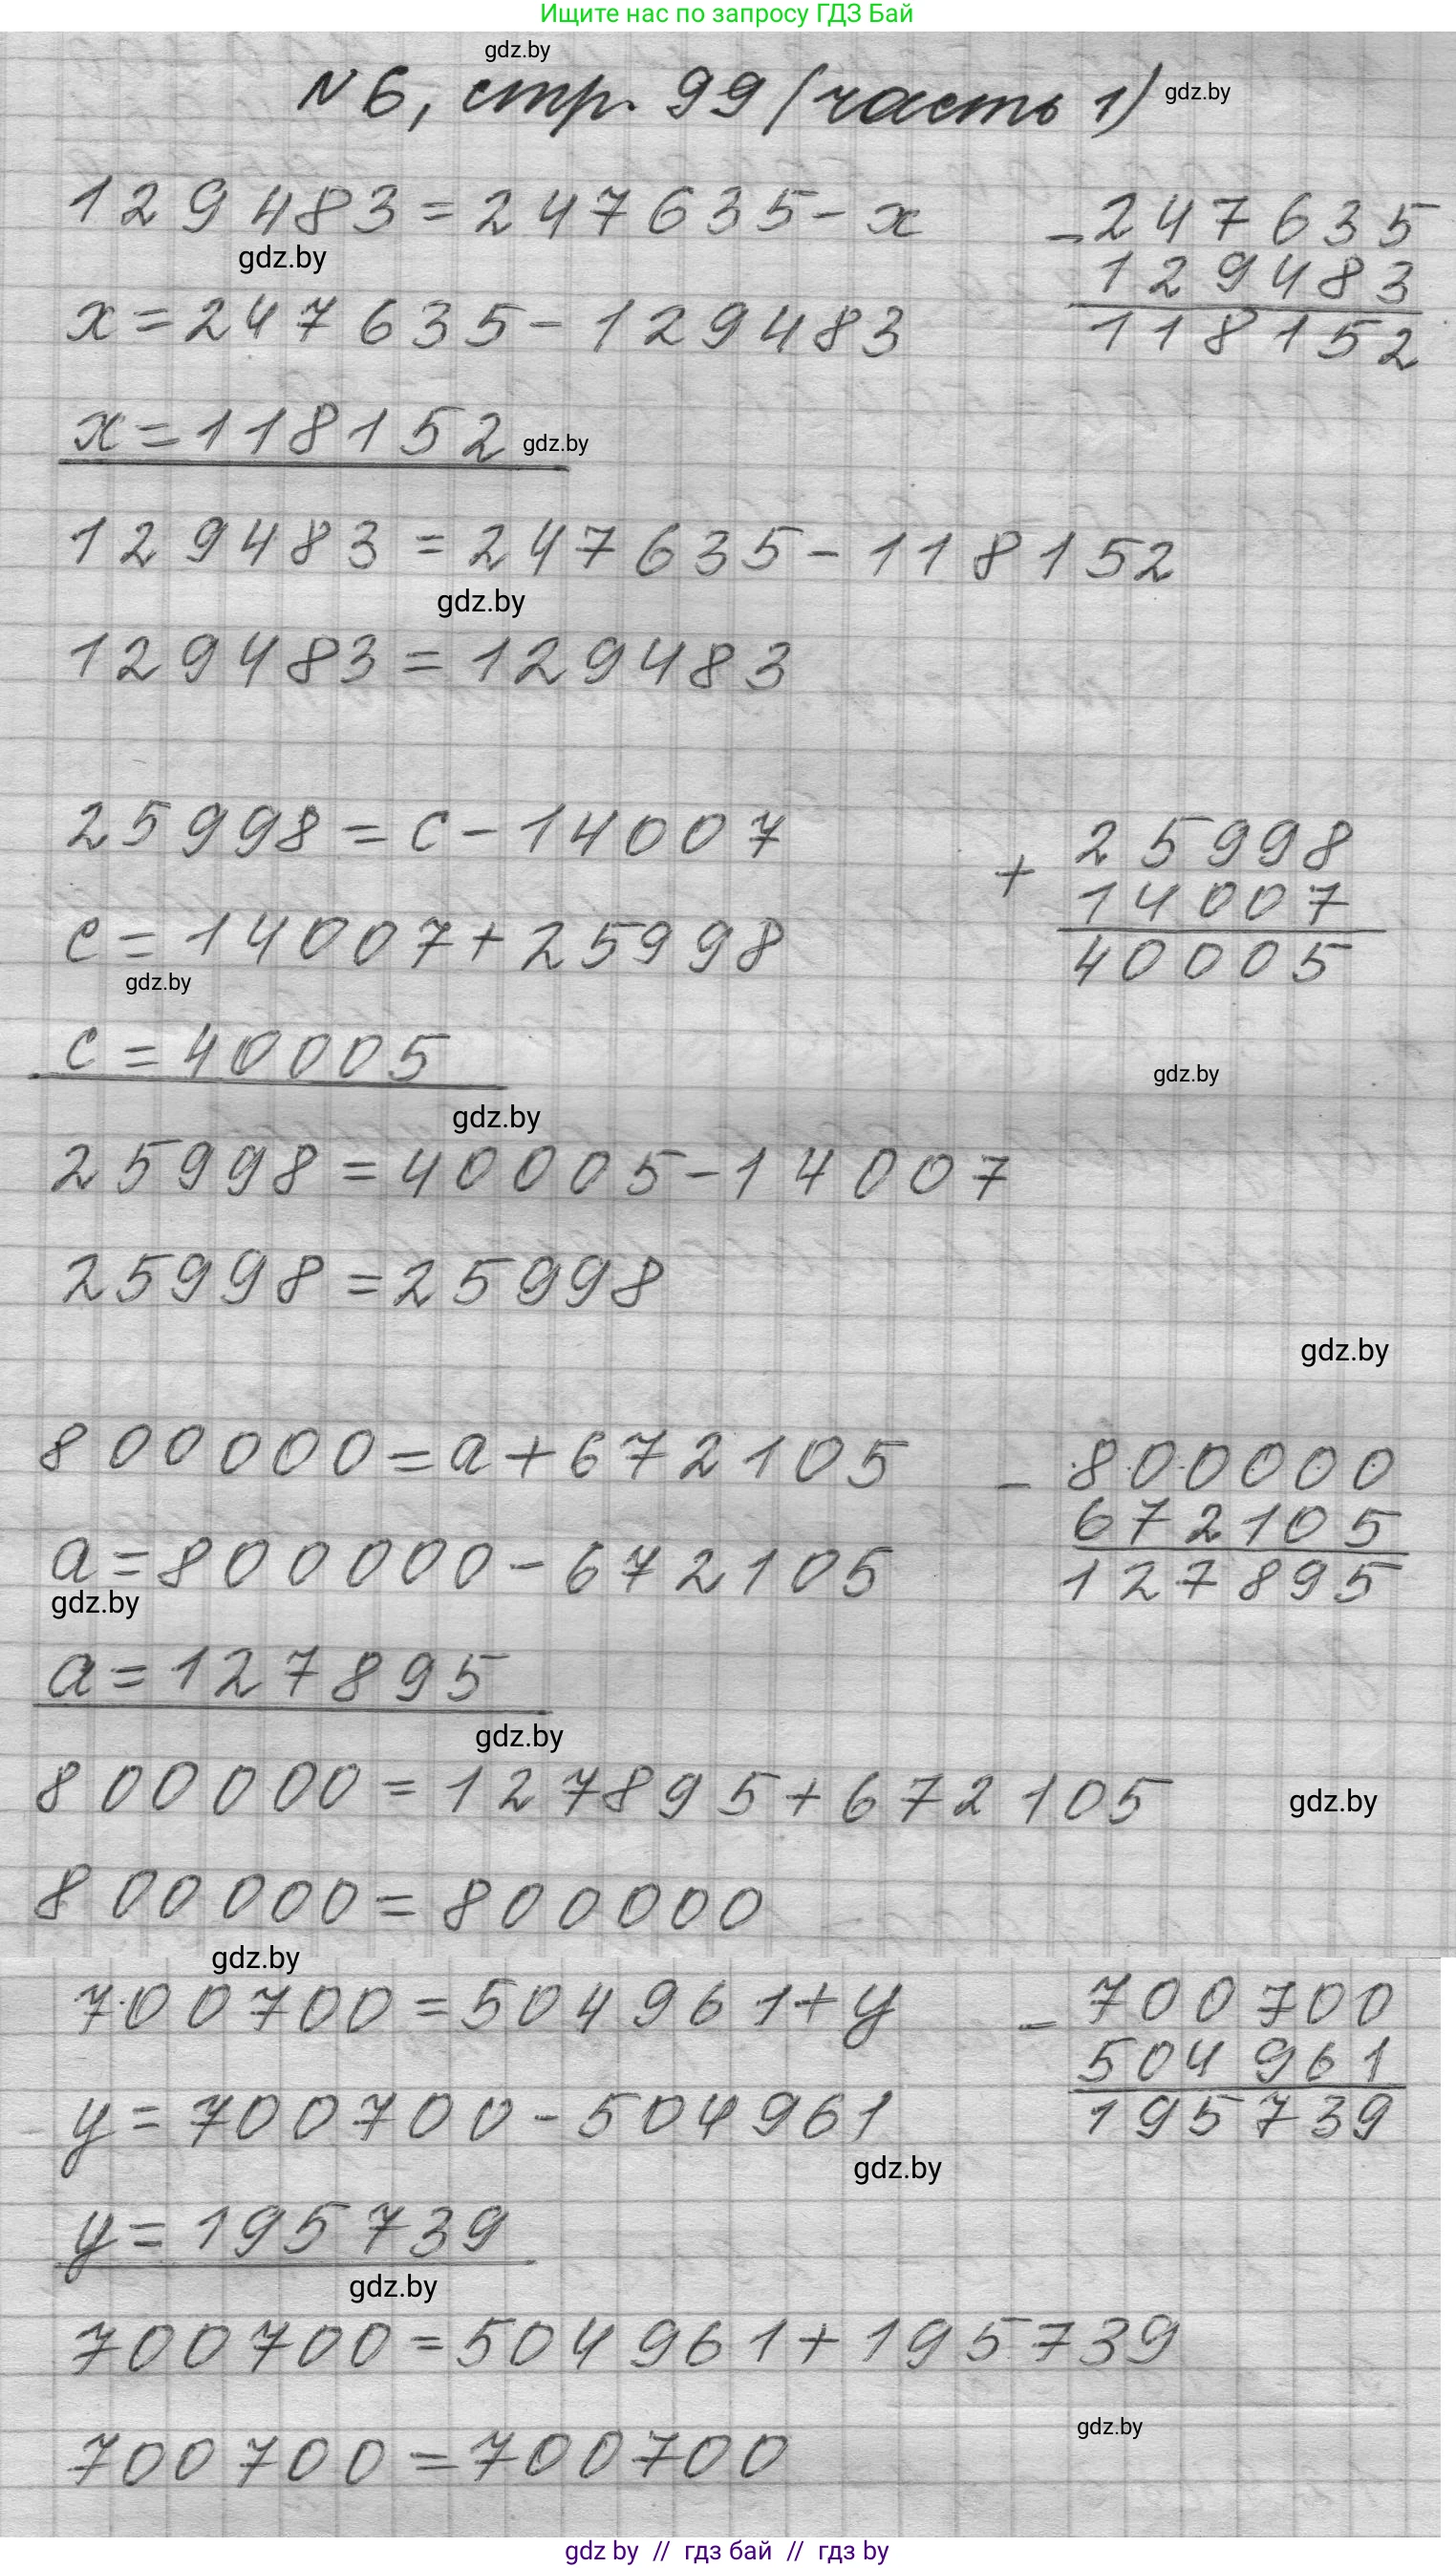 Ищите нас по запросу ГДЗ Бай
gdz.by
N 6, стр. 99 (часть 1) gdz.by
129483 = 247635 - x
gdz.by
x = 247635 - 129483
- 247635
129483
118152
x = 118152 gdz.by
129483 = 247635 - 118152
gdz.by
129483 = 129483
25998 = c - 14007
c = 14007 + 25998
gdz.by
+ 25998
14007
40005
c = 40005
gdz.by
gdz.by
25998 = 40005 - 14007
25998 = 25998
gdz.by
800000 = a + 672105
a = 800000 - 672105
gdz.by
- 800000
672105
127895
a = 127895
gdz.by
800000 = 127895 + 672105
gdz.by
800000 = 800000
gdz.by
700700 = 504961 + y
y = 700700 - 504961
- 700700
504961
195739
gdz.by
y = 195739
gdz.by
700700 = 504961 + 195739
gdz.by
700700 = 700700
gdz by // гдз бай // гдз by